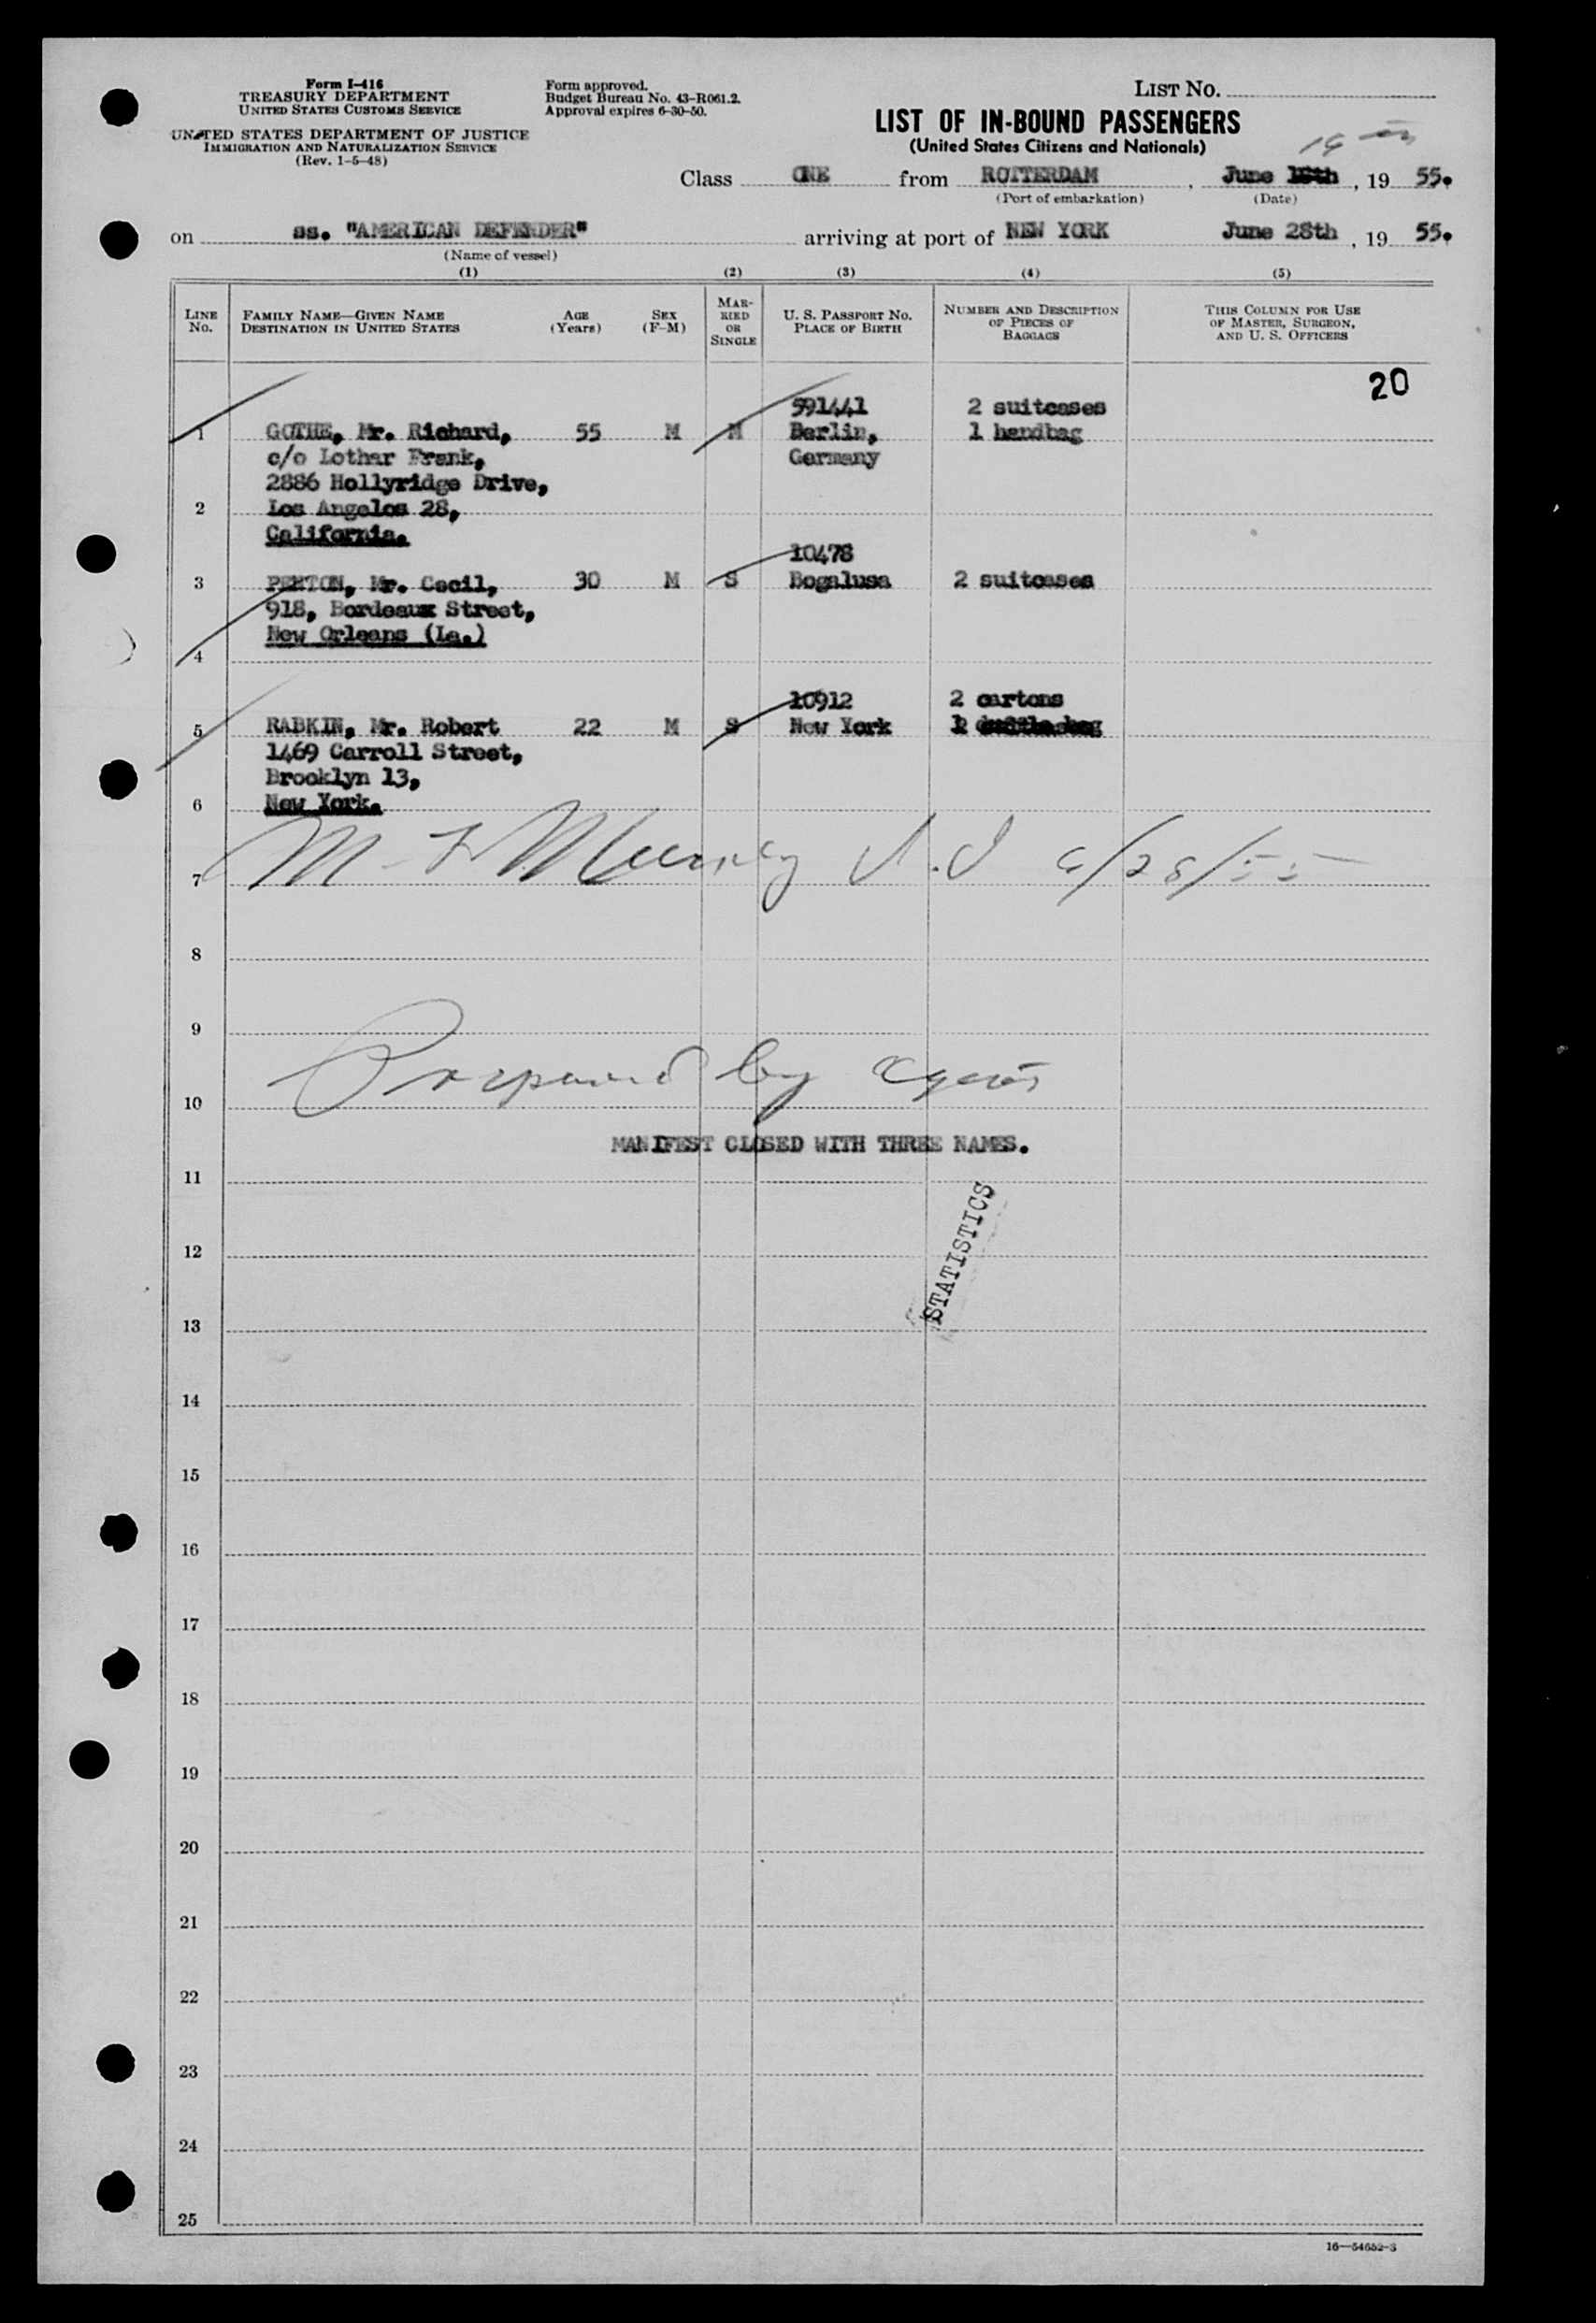 Form I-416
TREASURY DEPARTMENT
UNITED STATES CUSTOMS SERVICE
UNITED STATES DEPARTMENT OF JUSTICE
IMMIGRATION AND NATURALIZATION SERVICE
(Rev. 1-5-48)
Form approved.
Budget Bureau No. 43-R061.2.
Approval expires 6-30-50.
LIST NO.
LIST OF IN-BOUND PASSENGERS
(United States Citizens and Nationals)
Class ONE from ROTTERDAM, June , 19 55.
(Port of embarkation) (Date)
on ss. "AMERICAN DEFENDER" arriving at port of NEW YORK June 28th, 19 55.
(Name of vessel)
(1) (2) (3) (4) (5)
LINE NO.
FAMILY NAME—GIVEN NAME
DESTINATION IN UNITED STATES
AGE (Years)
SEX (F-M)
MARRIED OR SINGLE
U. S. PASSPORT NO.
PLACE OF BIRTH
NUMBER AND DESCRIPTION OF PIECES OF BAGGAGE
THIS COLUMN FOR USE OF MASTER, SURGEON, AND U. S. OFFICERS
20
591441 2 suitcases
1 GOTHE, Mr. Richard, 55 M M Berlin, 1 handbag
c/o Lothar Frank, Germany
2886 Hollyridge Drive,
2 Los Angelos 28,
California.
10478
3 Mr. Cecil, 30 M S Bogalusa 2 suitcases
918, Bordeaux Street,
New Orleans (La.)
4
10912 2 cartons
5 RABKIN, Mr. Robert 22 M S New York
1469 Carroll Street,
Brooklyn 13,
6 New York.
7 6/28/55
8
9
10 Prepared by Agents
MANIFEST CLOSED WITH THREE NAMES.
11
STATISTICS
12
13
14
15
16
17
18
19
20
21
22
23
24
25
16—54652-3